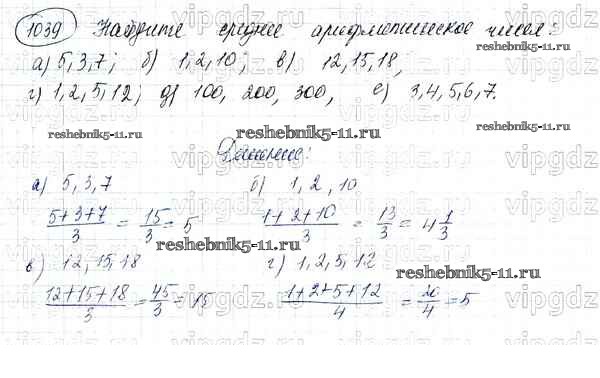 1039 Найдите среднее арифметическое чисел:
а) 5,3,7; б) 1,2,10; в) 12,15,18,
г) 1,2,5,12; д) 100, 200, 300, е) 3,4,5,6,7.
reshebnik5-11.ru reshebnik5-11.ru
Решение:
а) 5,3,7 б) 1,2,10
5+3+7/3 = 15/3 = 5 1+2+10/3 = 13/3 = 4 1/3
reshebnik5-11.ru
в) 12,15,18 г) 1,2,5,12
reshebnik5-11.ru
12+15+18/3 = 45/3 = 15 1+2+5+12/4 = 20/4 = 5